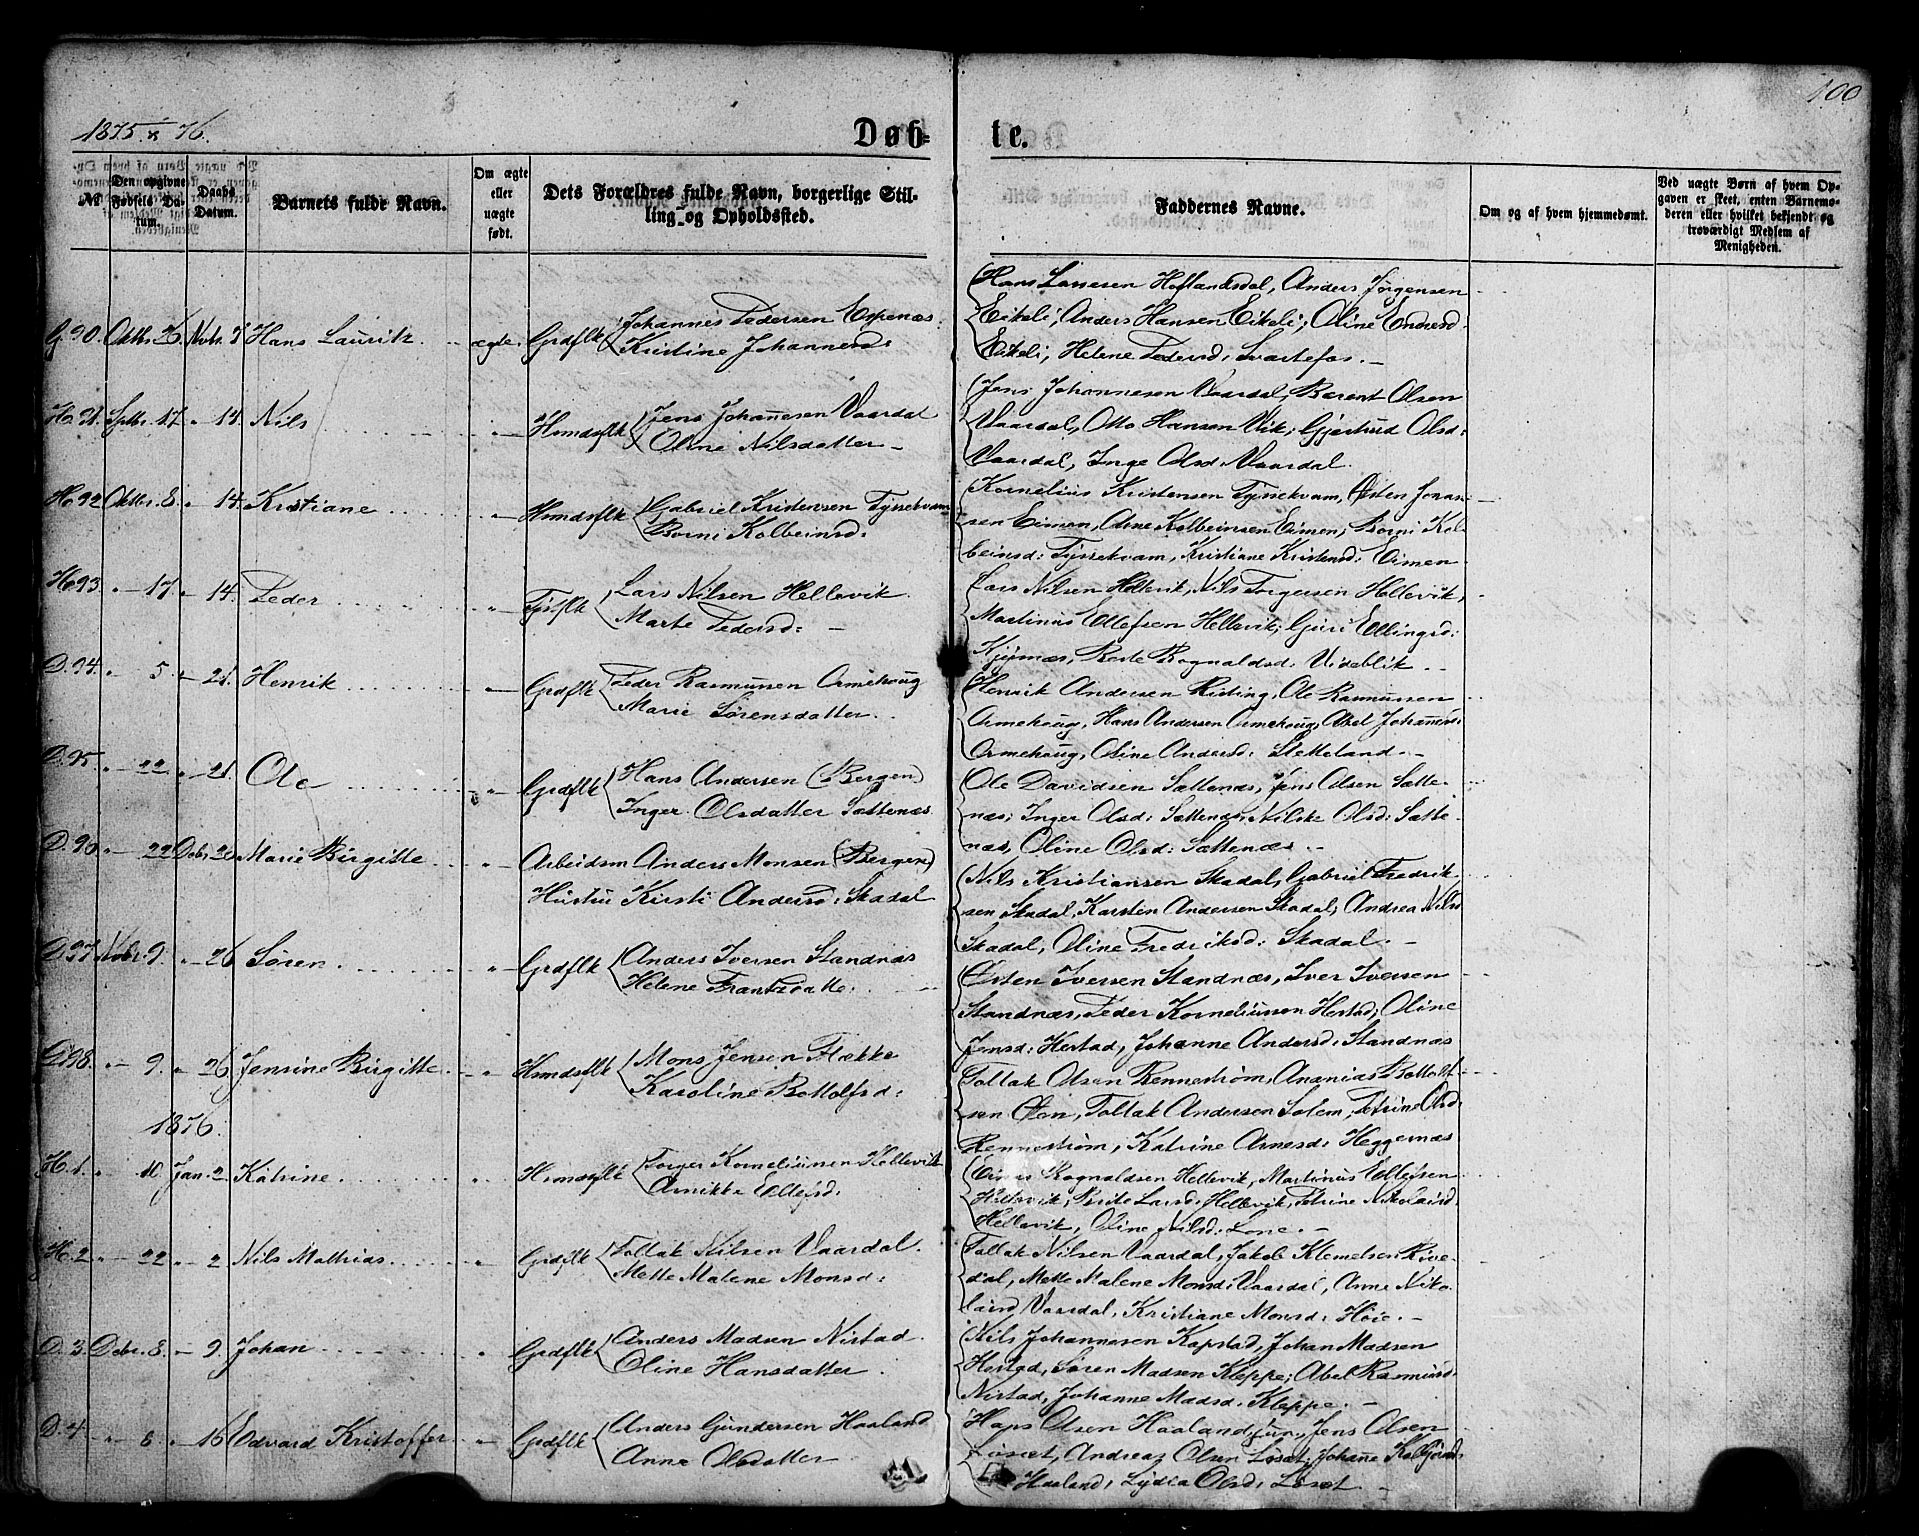 100
1875 & 76.
Døb- te.
№
Den opgivne Fødsels Datum.
Daabs Datum.
Barnets fulde Navn.
Om ægte eller uægte født.
Dets Forældres fulde Navn, borgerlige Stilling og Opholdssted.
Faddernes Navne.
Om og af hvem hjemmedømt.
Ved uægte Børn af hvem Opgaven er skeet, enten Barnemoderen eller hvilket bekjendt og troværdigt Medlem af Menigheden.
G. 90. Oktbr. 26 Nvbr. 7 Hans Lauritz ægte. Grdflk Johannes Pedersen Espenæs.
Kristine Johannesd:
Hans Lassesen Hoflandsdal, Anders Jørgensen
Eikeli, Anders Hansen Eikeli, Oline Endresd.
Eikeli, Helene Pedersd: Svartefos. –
H. 91. Sptbr. 17 " 14. Nils " Hsmdsflk Jens Johanesen Vaardal
Oline Nilsdatter –
Jens Johannesen Vaardal, Berent Olsen
Vaardal, Otto Hansen Vik, Gjertrud Olsd:
Vaardal, Inge Olsd. Vaardal.
H. 92 Oktbr. 8. " 14. Kristiane " Hsmdsflk Gabriel Kristensen Tyssekvam
Borni Kolbeinsd:
Kornelius Kristensen Tyssekvam, Østen Jonas-
sen Eimen, Arne Kolbeinsen Eimen, Borni Kol-
beinsd: Tyssekvam, Kristiane Kristensd: Eimen
H. 93 " 17. " 14. Peder " Tjstflk Lars Nilsen Hellevik.
Marte Pedersd: –
Lars Nilsen Hellevik, Nils Torgersen Hellevik,
Martinus Ellefsen Hellevik, Guri Ellingsd:
Rognaldsd: Videblik. –
D. 94. " 5 " 21. Henrik " Grdflk Peder Rasmussen Ormehoug
Marie Sørensdatter.
Henrik Andersen Risting, Ole Rasmussen
Ormehoug, Hans Andersen Ormehoug, Abel Johannesd:
Ormehoug, Oline Andersd: Stetteland. –
D. 95. " 22 " 21. Ole " Grdflk Hans Andersen (Bergen)
Inger Olsdatter Sættenæs
Ole Davidsen Sættenæs, Jens Olsen Sætte-
næs, Inger Olsd: Sættenæs, Nilske Olsd: Sætte-
næs, Oline Olsd: Sættenæs. –
D. 96. " 22 Debr. 26 Marie Birgitte " Arbeidsm Anders Monsen (Bergen)
Hustru Kirsti Andersd: Skadal
Nils Kristiansen Skadal, Gabriel Fredrik-
sen Skadal, Karsten Andersen Skadal, Andrea Nilsd
Skadal, Oline Fredriksd: Skadal. –
D. 97. Nvbr. 9. " 26 Søren " Grdflk Anders Iversen Standnæs
Helene Frantzdatte.
Østen Iversen Standnæs, Iver Iversen
Standnæs, Peder Korneliussen Herstad, Oline
Jensd: Herstad, Johanne Andersd: Standnæs
G. 98. " 9. " 26 Jensine Birgitte " Hsmdsflk Mons Jensen Flække
Karoline Bottolfsd:
Foltak Olsen Rennestrøm, Ananias Bottolf-
sen Øen, Foltak Andersen Solem, Petrine Olsd:
Rennestrøm, Katrine Arnesd: Heggernæs
1876.
H. 1. " 10 Jan. 2 Katrine " Hsmdsflk Torger Korneliussen Hellevik
Annikke Ellefsd:
Rognaldsen Hellevik, Martinus Ellefsen
Hellevik, Brite Larsd: Hellevik, Petrine Nikolaisd:
Hellevik, Oline Nilsd. Lone. –
H. 2 " 22 " 2 Nils Mathias " Grdflk Foltak Nilsen Vaardal.
Mette Malene Monsd:
Foltak Nilsen Vaardal, Jakob Klemetsen Rive-
dal, Mette Malene Monsd: Vaardal, Anne Niko-
laisd Vaardal, Kristiane Monsd: Høie. –
D. 3. Debr. 8. " 9. Johan " Grdflk Anders Madsen Nistad.
Oline Hansdatter
Nils Johannesen Kapstad, Johan Madsen
Herstad, Søren Madsen Kleppe, Abel Rasmusd:
Nistad, Johanne Madsd. Kleppe. –
D. 4 " 6 " 16 Edvard Kristoffer " Grdflk Anders Gundersen Haaland
Anne Olsdatter
Hans Olsen Haaland jun, Jens Olsen
Løset, Andreas Olsen Løset, Johane
Haaland, Lydia Olsd: Løset. –